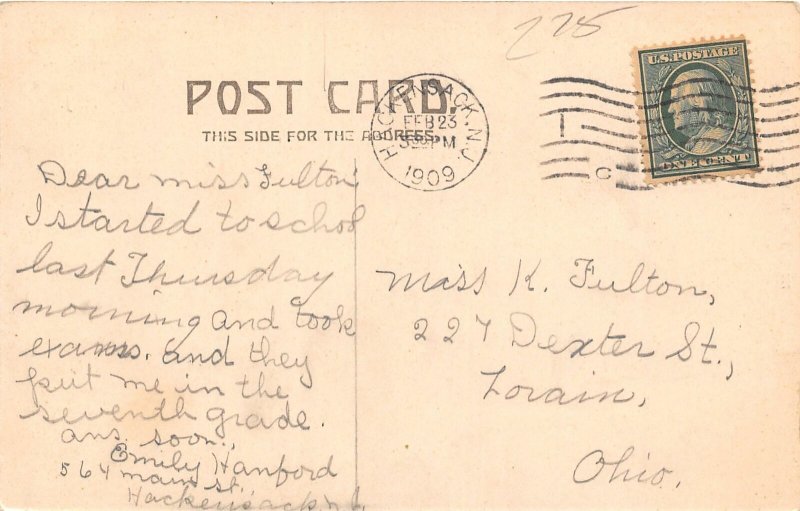 228
POST CARD.
THIS SIDE FOR THE ADDRESS.
HACKENSACK, N.J.
FEB 23
PM
1909
U.S. POSTAGE
ONE CENT
C
Dear Miss Fulton:
I started to school
last Thursday
morning and took
exams. and they
put me in the
seventh grade.
ans. soon.,
Emily Hanford
564 main st.
Hackensack N.J.
Miss K. Fulton,
227 Dexter St.,
Lorain,
Ohio.